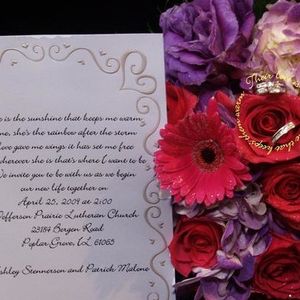 is the sunshine that keeps me warm
me, she's the rainbow after the storm
ove gave me wings it has set me free
herever she is that's where I want to be
We invite you to be with us as we begin
our new life together on
April 25, 2009 at 2:00
Jefferson Prairie Lutheran Church
23184 Bergen Road
Poplar Grove, IL 61065
shley Stennerson and Patrick Malone
Their love